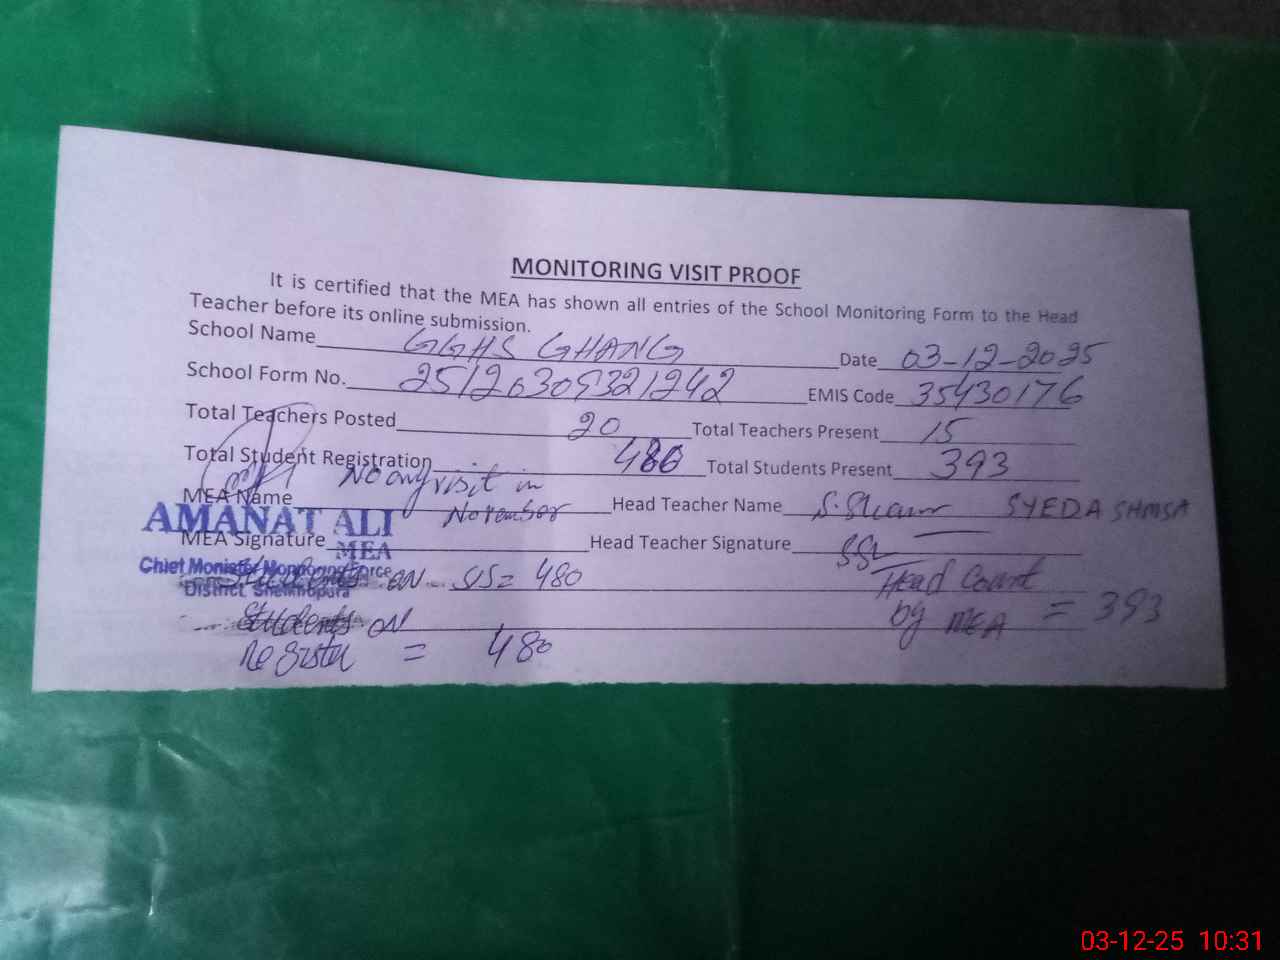 MONITORING VISIT PROOF
It is certified that the MEA has shown all entries of the School Monitoring Form to the Head
Teacher before its online submission.
School Name GGHS GHANG Date 03-12-2025
School Form No. 25120309321242 EMIS Code 35430176
Total Teachers Posted 20 Total Teachers Present 15
Total Student Registration 480 Total Students Present 393
No any visit in
MEA Name November Head Teacher Name S. Sham SYEDA SHMSA
AMANAT ALI
MEA Signature Head Teacher Signature
MEA
Chief Minister Monitoring Force
District Sheikhupura
Students on SIS = 480
Head Count
by MEA = 393
Students on
Register = 480
03-12-25 10:31